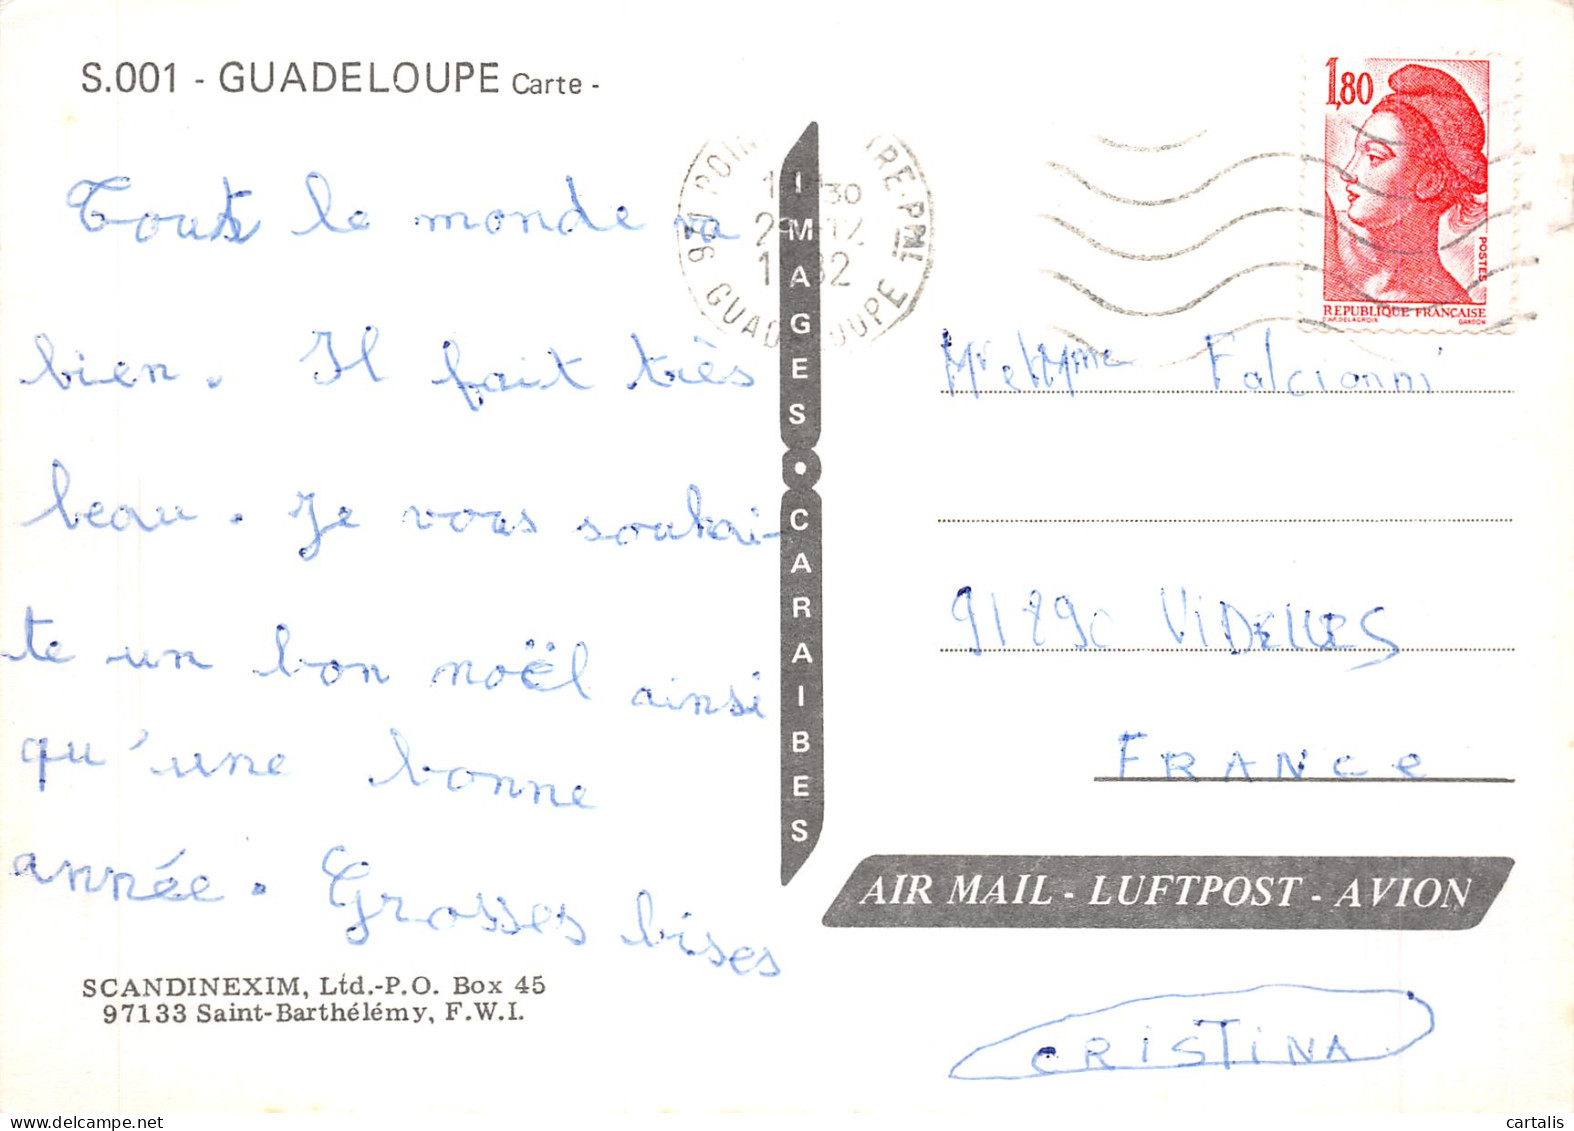 S.001 - GUADELOUPE Carte -
Tout le monde va
bien. Il fait très
beau. Je vous souhai-
te un bon noël ainsi
qu'une bonne
année. Grosses bises
SCANDINEXIM, Ltd.-P.O. Box 45
97133 Saint-Barthélémy, F.W.I.
IMAGES • CARAIBES
GUADELOUPE
1,80
POSTES
REPUBLIQUE FRANÇAISE
D'AP. DELACROIX GANDON
Mr et Mme Falcionni
91890 ViDELLES
FRANCe
AIR MAIL - LUFTPOST - AVION
CRiSTiNA
www.cartalis.com